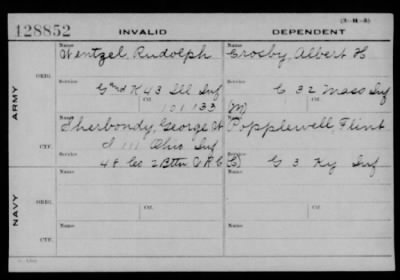 (3-M-5)
128852 INVALID DEPENDENT
Name Name
Wentzel, Rudolph Crosby, Albert H
ORIG. Service Service
K 43 Ill Inf C 32 Mass Inf
Ctf. Ctf.
101133 (M)
ARMY
Name Name
Sherbondy, George W Popplewell, Flint
CTF. Service Service
I 111 Ohio Inf
48 Co 2 Bttn V R C (C) G 3 Ky Inf
Name Name
ORIG.
Service Service
Ctf. Ctf.
NAVY
Name Name
CTF.
Service Service